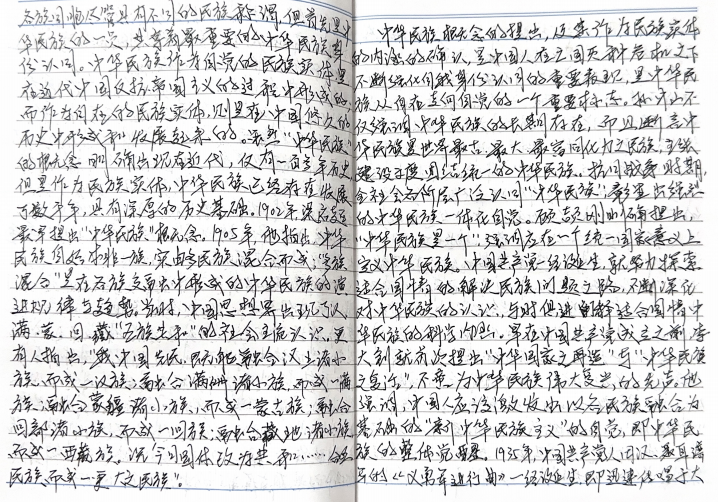 各族间物仅管具有不同的民族称谓,但首先是中
华民族的一员,共享着最重要的中华民族身
份认同。中华民族作为自觉的民族实体是
在近代中国反抗帝国主义的过程中形成的,
而作为自在的民族实体,则是在中国悠久的
历史中形成和发展起来的。虽然"中华民族"
的概念明确出现在近代,仅有一百多年历史
但是作为民族实体,中华民族已经存在发展
了数千年,具有深厚的历史基础。1902年梁启超
最早提出"中华民族"概念。1905年,他指出,中华
民族自始本非一族,实由多民族混合而成;"多族
混合"是在各族交融中形成的中华民族的演
进规律与趋势。当时,中国思想界出现了汉、
满、蒙、回、藏"五族共和"的社会主流认识。更
有人指出,"我中国先民,既能融合汉土诸小
族,而成一汉族;融合满洲诸小族,而成一满
族;融合蒙疆诸小族,而成一蒙古族;融合
回部诸小族,而成一回族;融合藏地诸小族
而成一西藏族。况今日国体改为共和……合各
民族而成一更大之民族"。
中华民族概念的提出,这是作为民族实体
的内涵的确认,是中国人在亡国灭种危机之下
不断强化自我身份认同的重要表现,是中华民
族从自在走向自觉的一个重要标志。孙中山不
仅强调中华民族的长期存在,而且断言中
华民族是世界最古、最大、最富同化力之民族,主张
建设高度团结统一的中华民族。抗日战争时期,
全社会各阶层广泛认同"中华民族",彰显出强烈
的中华民族一体化自觉。顾颉刚明确提出,
"中华民族是一个",强调应在一个统一国家意义上
定义中华民族。中国共产党一经诞生,就努力探索
适合国情的解决民族问题之路,不断深化
对中华民族的认识,与时俱进阐释适合国情的中
华民族的科学内涵。早在中国共产党成立之前,李
大钊就首次提出"中华国家之再造"与"中华民族
之复活",不啻为中华民族伟大复兴的先声。他
强调,中国人应该激发出以各民族融合为
基础的"新中华民族主义"的自觉,即中华民
族的整体觉醒。1935年,中国共产党人田汉、聂耳谱
写的《义勇军进行曲》一经诞生,即迅速传遍于大